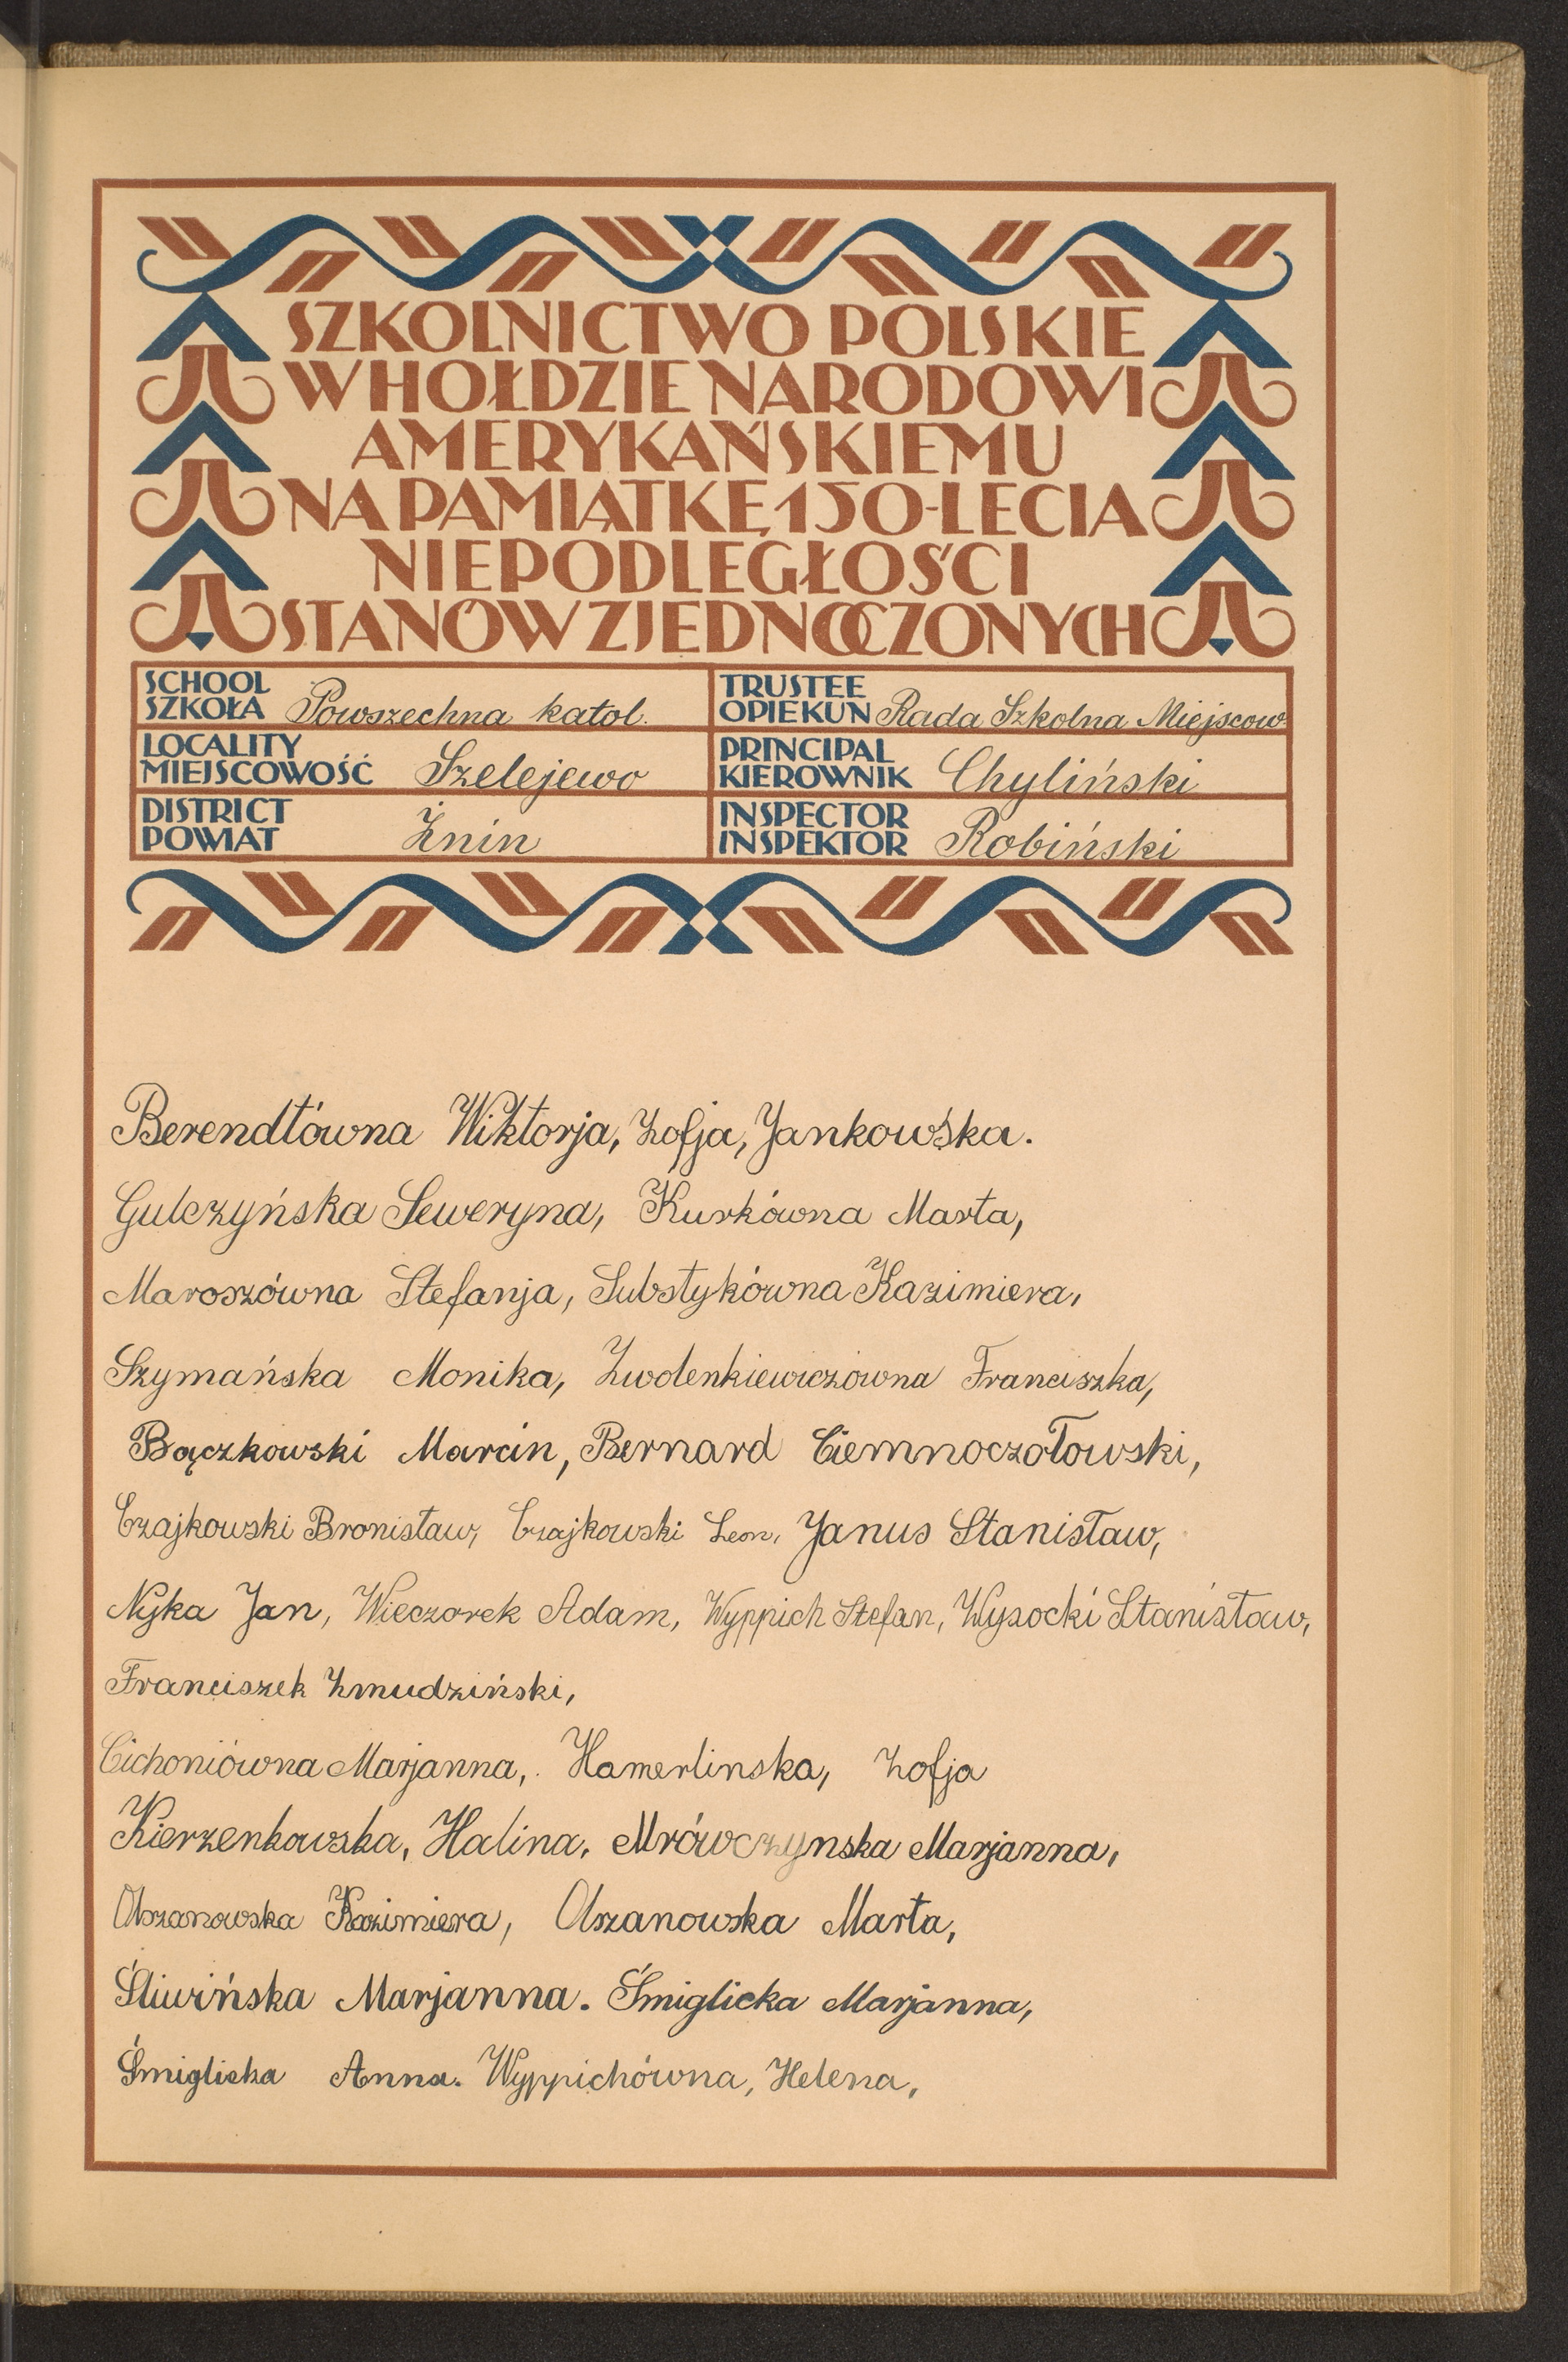 SZKOLNICTWO POLSKIE
W HOŁDZIE NARODOWI
AMERYKAŃSKIEMU
NA PAMIĄTKĘ 150-LECIA
NIEPODLEGŁOŚCI
STANÓW ZJEDNOCZONYCH
SCHOOL
SZKOŁA Powszechna katol.
TRUSTEE
OPIEKUN Rada Szkolna Miejscow
LOCALITY
MIEJSCOWOŚĆ Szelejewo
PRINCIPAL
KIEROWNIK Chyliński
DISTRICT
POWIAT Żnin
INSPECTOR
INSPEKTOR Robiński
Berendtówna Wiktorja, Zofja, Jankowska.
Gulczyńska Seweryna, Kurkówna Marta,
Maroszówna Stefanja, Substykówna Kazimiera,
Szymańska Monika, Zwolenkiewiczówna Franciszka,
Bączkowski Marcin, Bernard Ciemnoczołowski,
Czajkowski Bronisław, Czajkowski Leon, Janus Stanisław,
Nyka Jan, Wieczorek Adam, Wyppich Stefan, Wysocki Stanisław,
Franciszek Żmudziński,
Cichoniówna Marjanna, Hamerlinska, Zofja
Kierzenkowska, Halina, Mrówczynska Marjanna,
Olszanowska Kazimiera, Olszanowska Marta,
Śliwińska Marjanna. Śmiglicka Marjanna,
Śmiglicka Anna. Wyppichówna, Helena,